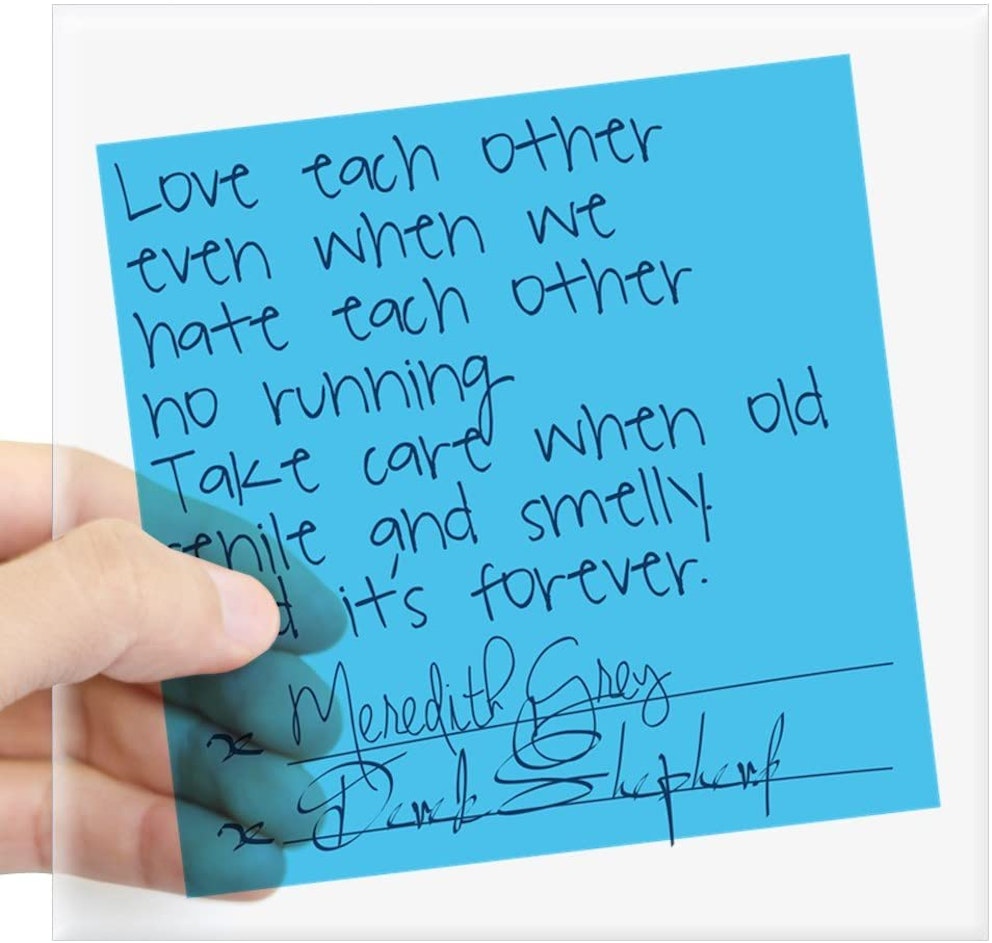 Love each other
even when we
hate each other
no running
Take care when old
senile and smelly
it's forever.
x Meredith Grey
x Derek Shepherd